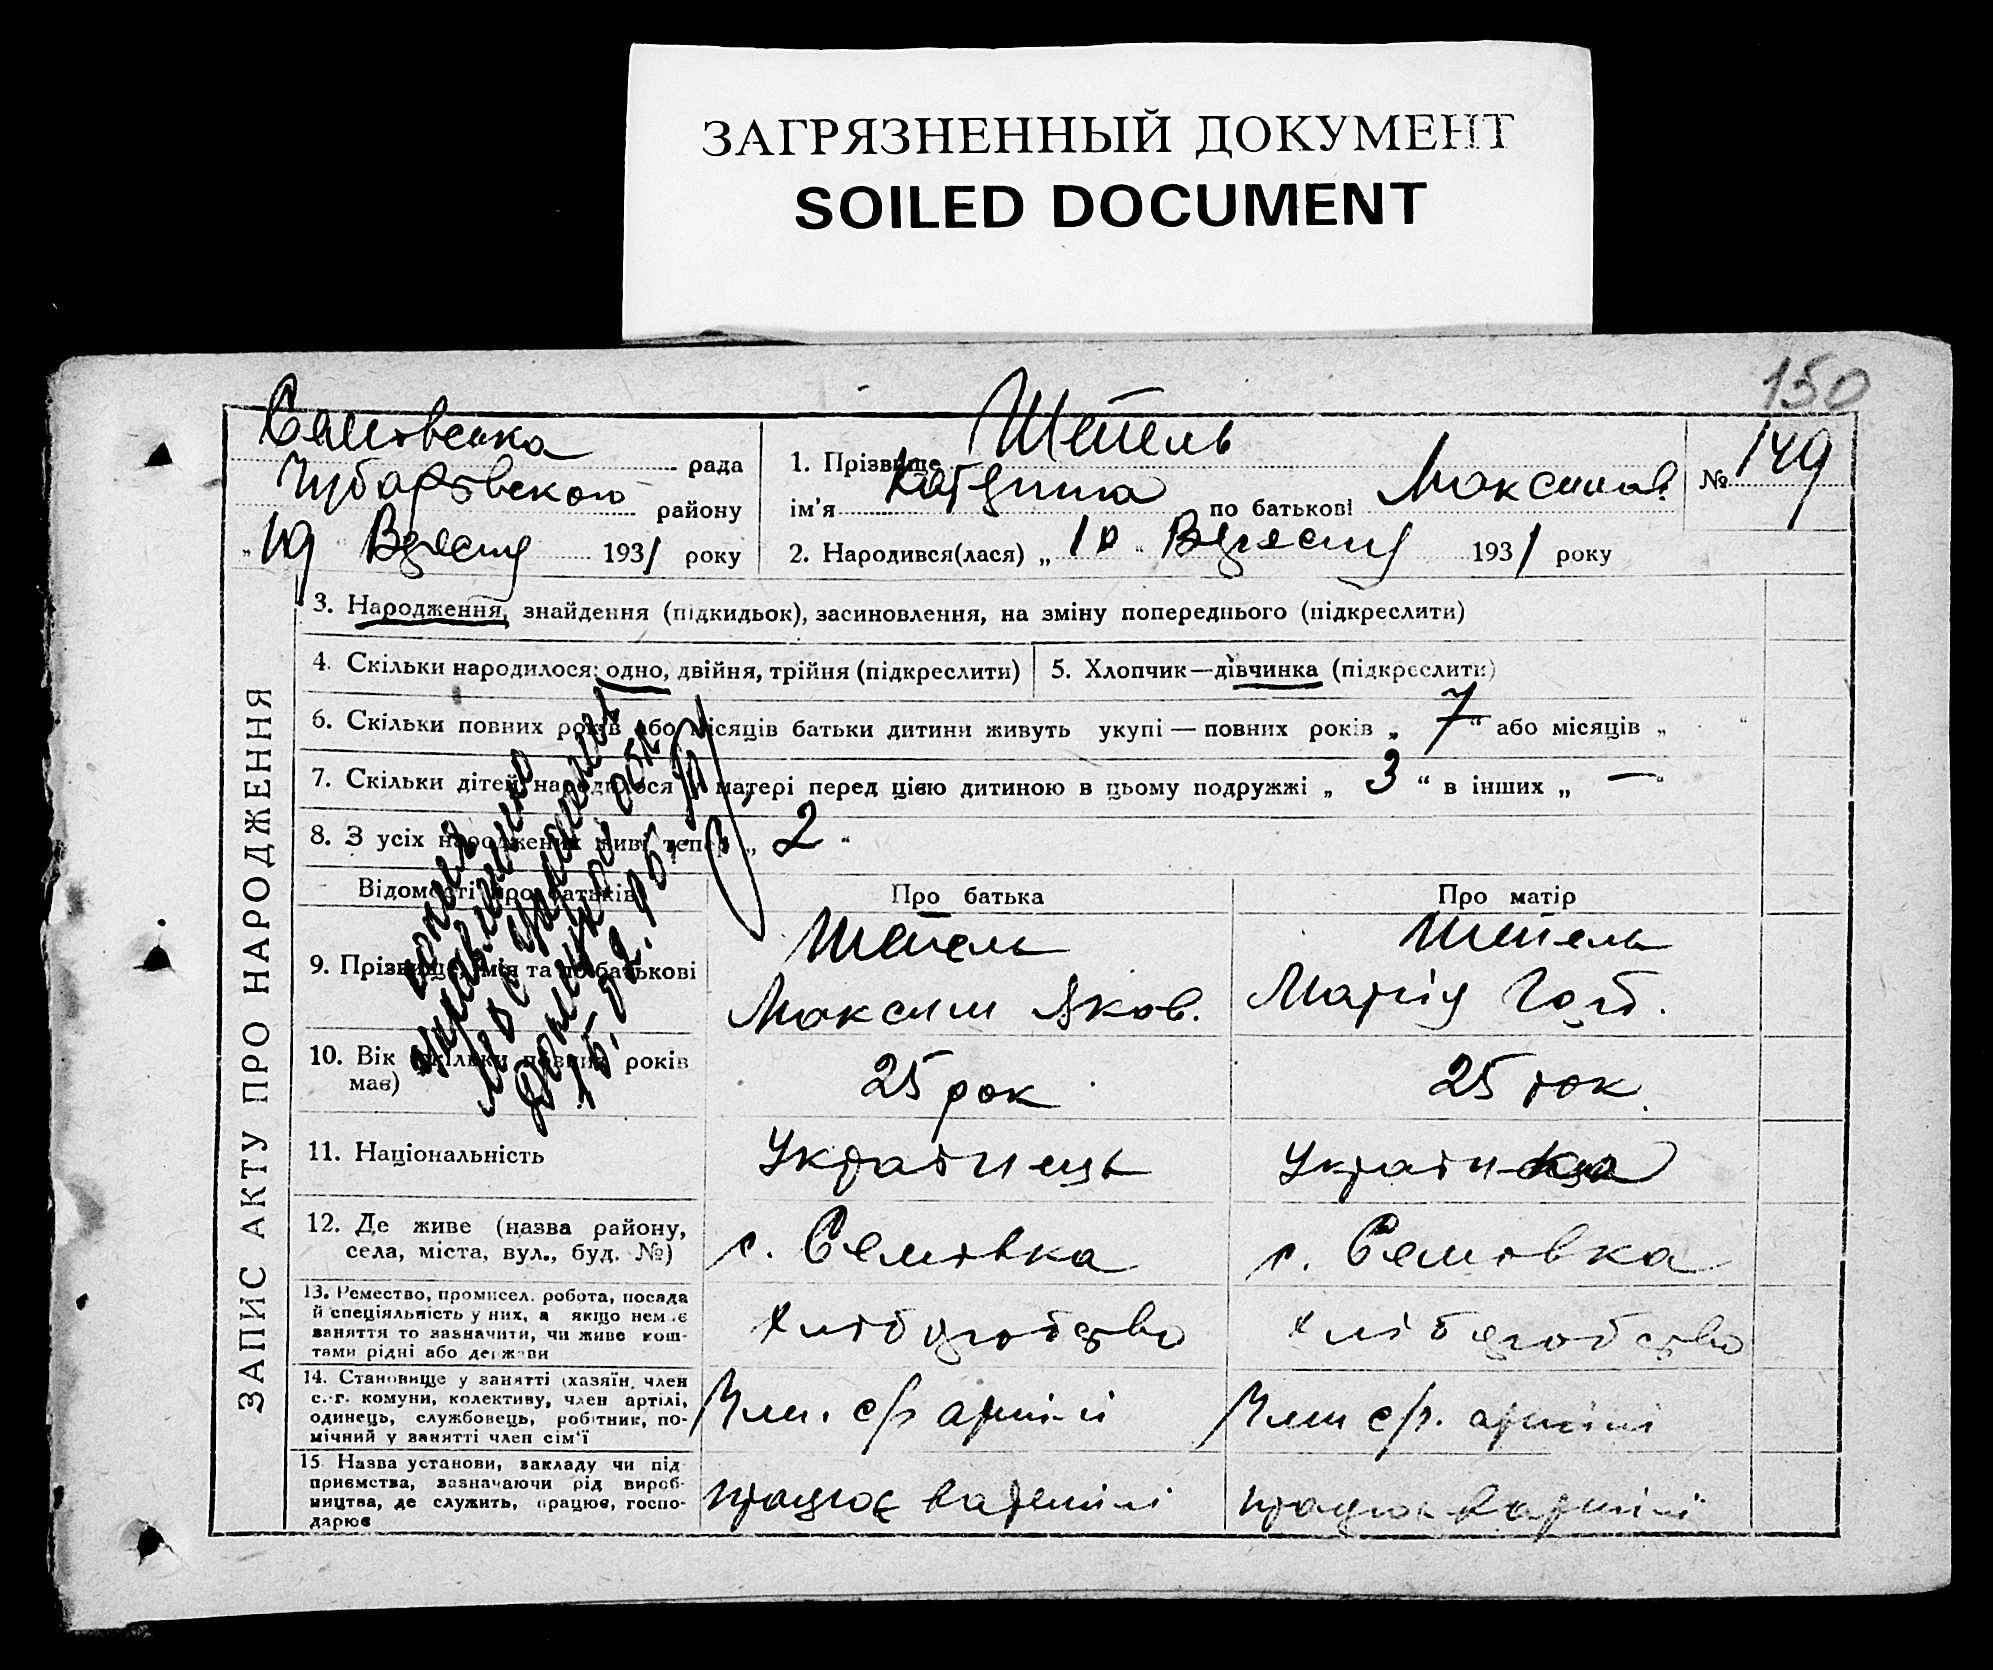 ЗАГРЯЗНЕННЫЙ ДОКУМЕНТ
SOILED DOCUMENT
150
Семовська рада
Чубарівского району
„ 19 " Вересня 1931 року
1. Прізвище Шепель
ім'я Катерина по батькові Максимов.
№ 149
2. Народився(лася) „ 10 " Вересня 1931 року
ЗАПИС АКТУ ПРО НАРОДЖЕННЯ
3. Народження, знайдення (підкидьок), засиновлення, на зміну попереднього (підкреслити)
4. Скільки народилося: одно, двійня, трійня (підкреслити)
5. Хлопчик—дівчинка (підкреслити)
6. Скільки повних років або місяців батьки дитини живуть укупі — повних років „ 7 " або місяців „ "
7. Скільки дітей народилося у матері перед цією дитиною в цьому подружжі „ 3 " в інших „ — "
8. З усіх народжених живі тепер „ 2 "
Відомості про батьків
Про батька
Про матір
9. Прізвище, імя та по батькові
Шепель
Максим Яков.
Шепель
Марія
10. Вік (скільки повних років має)
25 рок
25 рок.
11. Національність
Українець
Українка
12. Де живе (назва району,
села, міста, вул., буд. №)
с. Семівка
с. Семівка
13. Ремество, промисел. робота, посада
й спеціяльність у них, а якщо немає
заняття то зазначити, чи живе кош-
тами рідні або держави
Хліборобство
хліборобство
14. Становище у занятті (хазяїн, член
с.-г. комуни, колективу, член артілі,
одинець, службовець, робітник, по-
мічний у занятті член сім'ї
Член. с/г артілі
Член с/г. артілі
15 Назва установи, закладу чи під-
приємства, зазначаючи рід вироб-
ництва, де служить, працює, госпо-
дарює
працює в артілі
працює в артілі